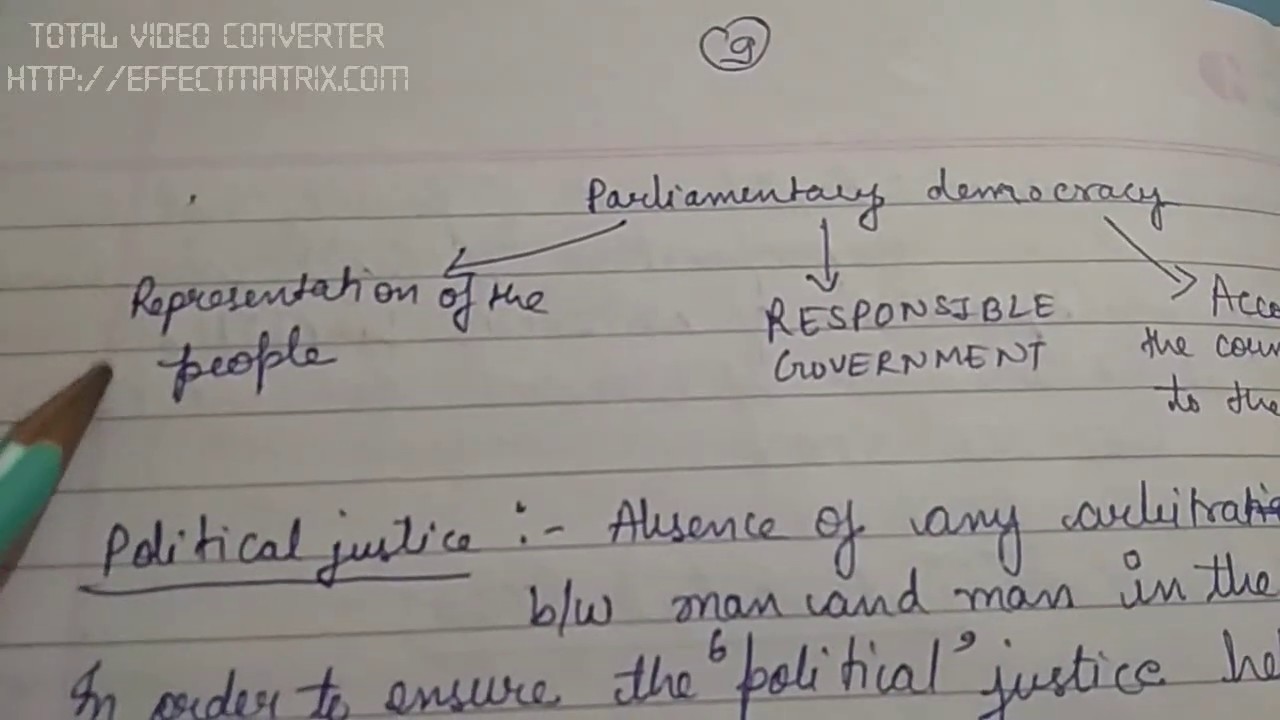 TOTAL VIDEO CONVERTER
HTTP://EFFECTMATRIX.COM
9
Parliamentary democracy
Representation of the
people
RESPONSIBLE
GOVERNMENT
Acco
the coun
to the
Political justice :- Absence of any
b/w man and man in the
In order to ensure the 'political' justice he